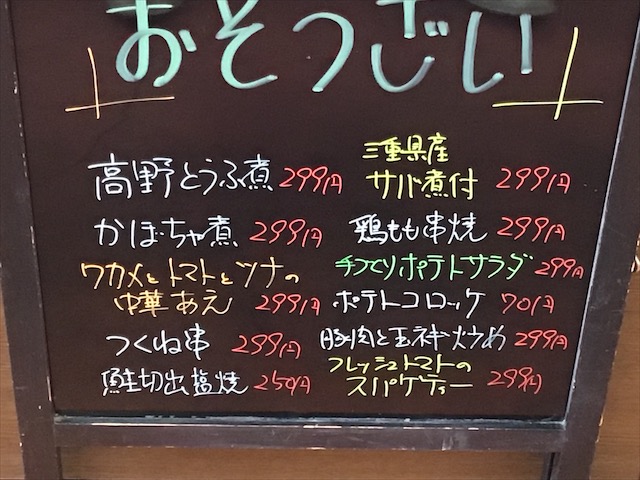 おそうざい
高野とうふ煮 299円
かぼちゃ煮 299円
ワカメとトマトとツナの
中華あえ 299円
つくね串 299円
鮭切出塩焼 250円
三重県産
サバ煮付 299円
鶏もも串焼 299円
手づくりポテトサラダ 299円
ポテトコロッケ 70円
豚肉と玉ネギ炒め 299円
フレッシュトマトの
スパゲティー 299円